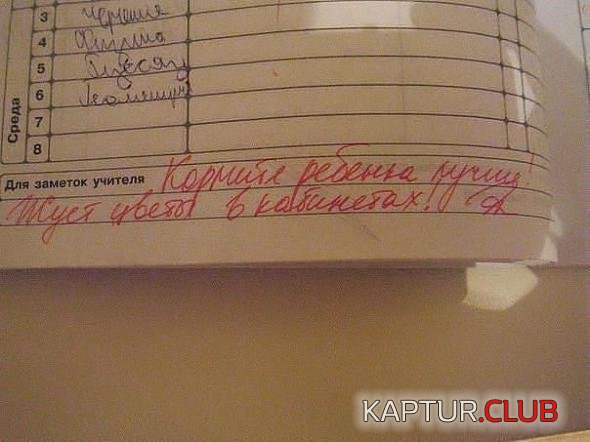 Среда
3
4 Физика
5
6 Геометрия
7
8
Для заметок учителя Кормите ребенка лучше!
Жует цветы в кабинетах!
KAPTUR.CLUB